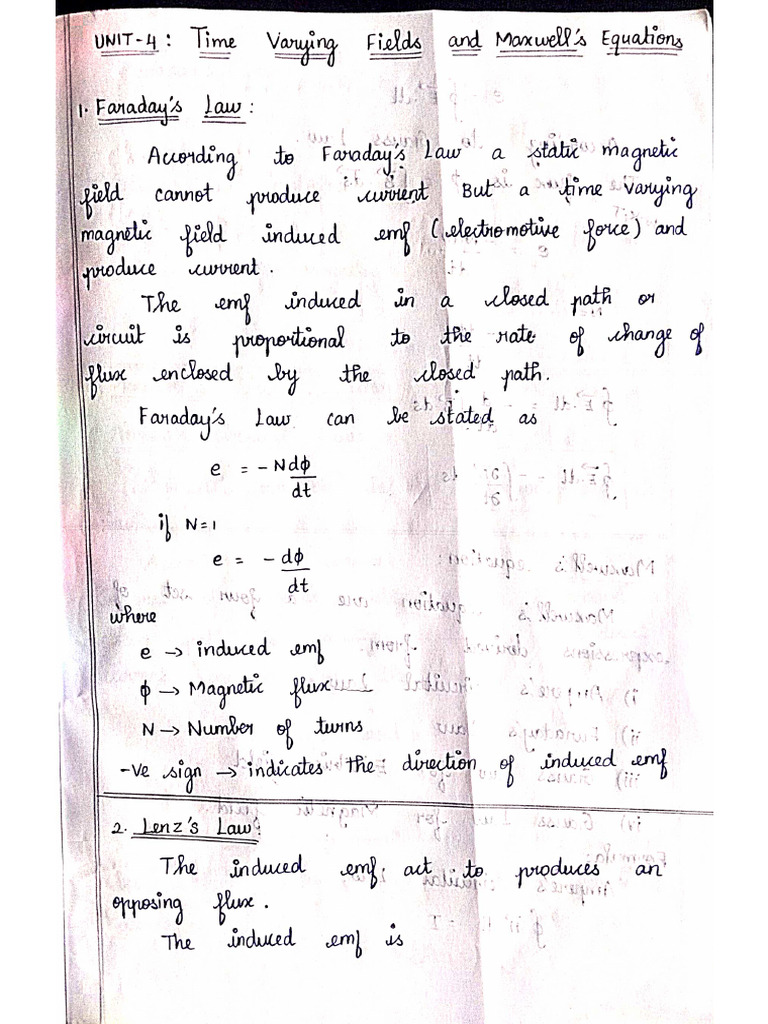 UNIT-4: Time Varying Fields and Maxwell's Equations
1. Faraday's Law:
Acording to Faraday's Law a static magnetic
field cannot produce current But a time varying
magnetic field induced emf (electromotive force) and
produce current.
The emf induced in a closed path or
circuit is proportional to the rate of change of
flux enclosed by the closed path.
Faraday's Law can be stated as
e = -Ndϕ/dt
if N=1
e = -dϕ/dt
where
e → induced emf
ϕ → Magnetic flux
N → Number of turns
-ve sign → indicates the direction of induced emf
2. Lenz's Law:
The induced emf act to produces an
opposing flux.
The induced emf is